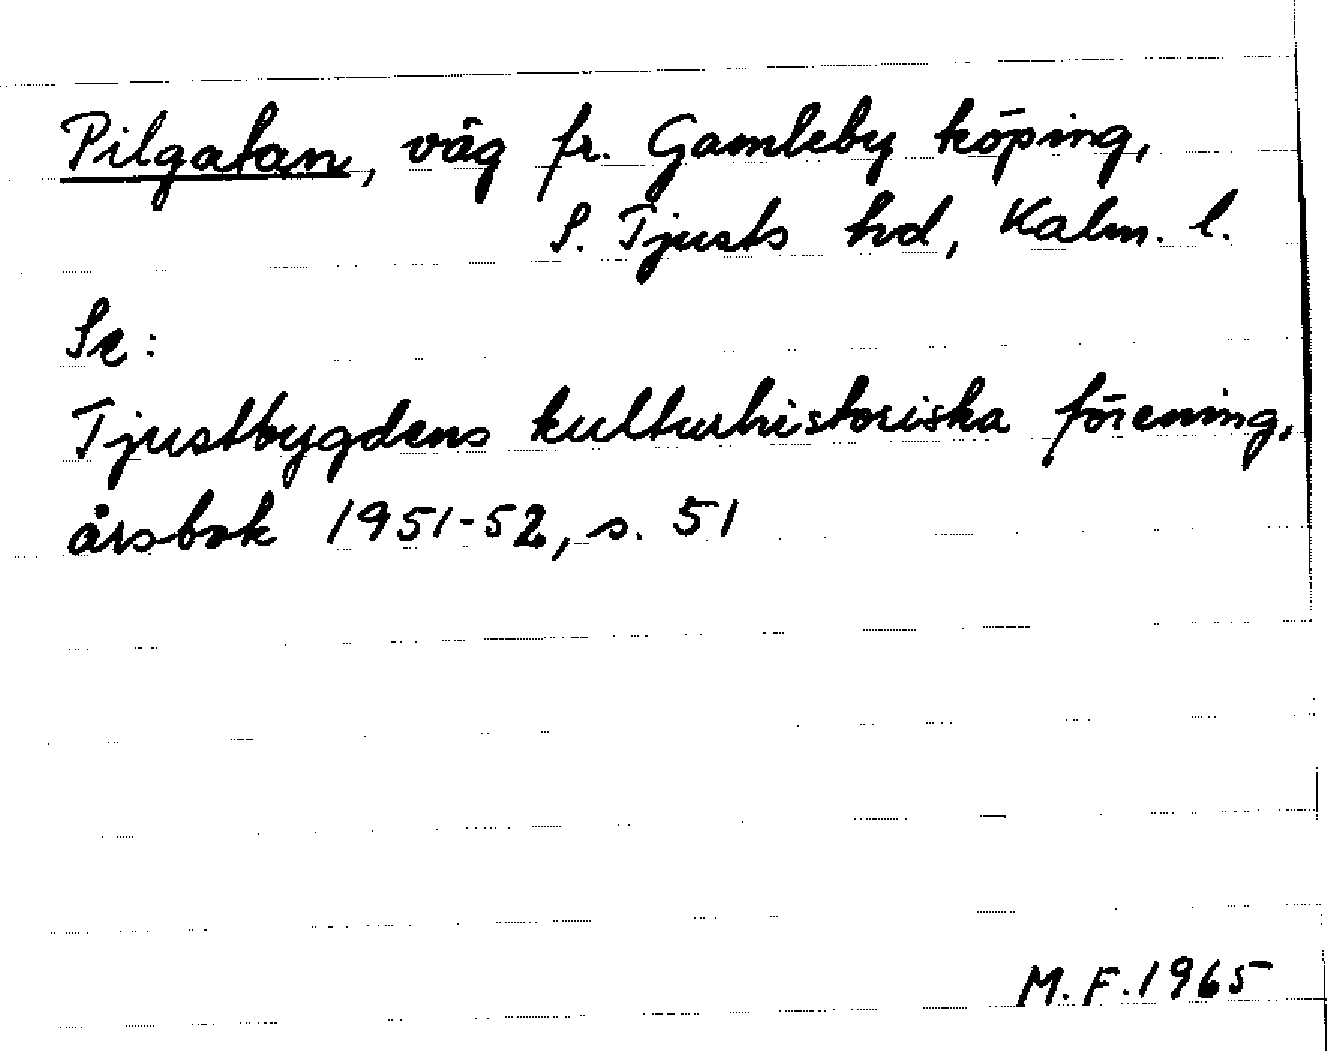 Pilgatan, väg fr. Gamleby köping,
S. Tjusts hd, Kalm. l.
Se:
Tjustbygdens kulturhistoriska förening,
årsbok 1951-52, s. 51
M.F. 1965